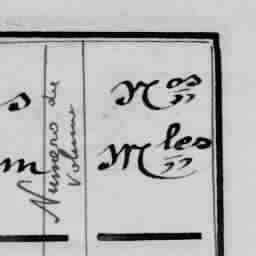 s
m
Numéro du
Volume
Nos
Mles